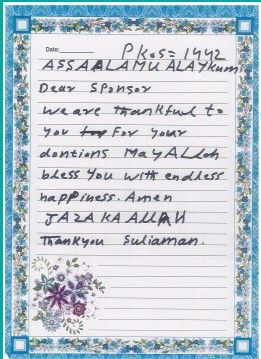 Date: PK.S= 1442
ASSAALAMU ALAYKUM
Dear Sponsor
we are thankful to
you for your
dontions MayALLah
bless You with endless
happiness. Amen
JAZAKAALLAH
Thankyou Suliaman.